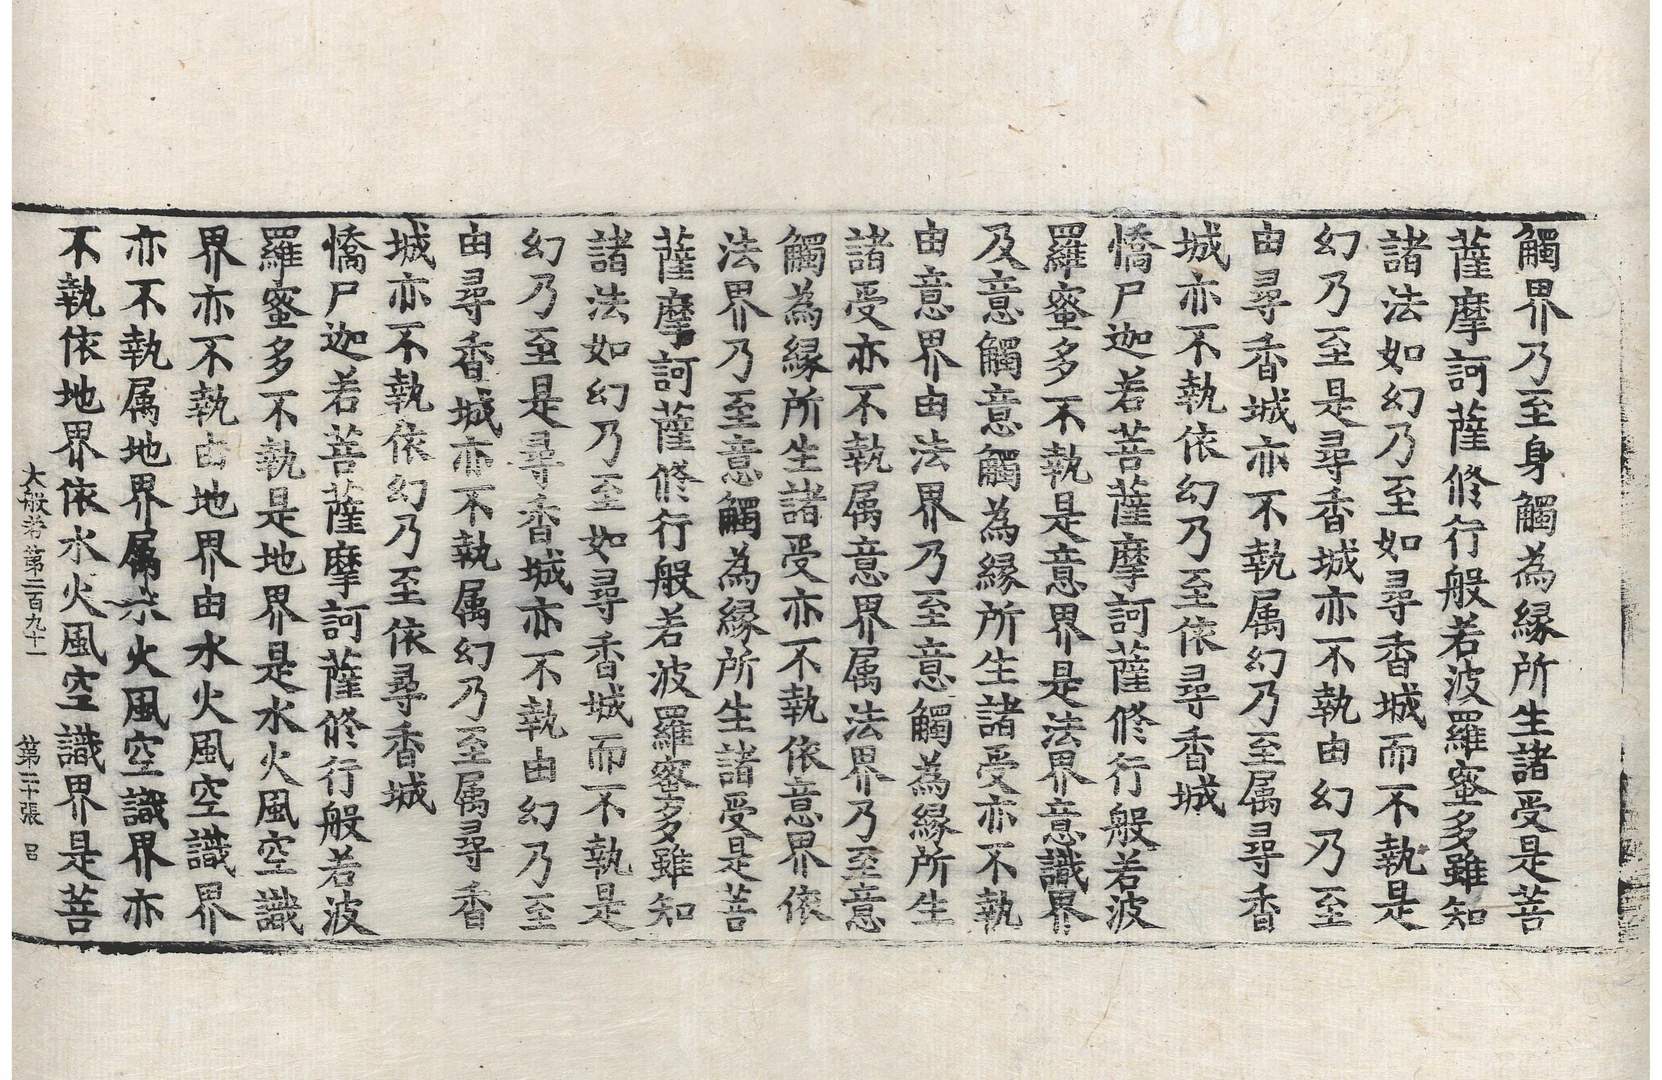 觸界乃至身觸為縁所生諸受是菩
薩摩訶薩修行般若波羅蜜多雖知
諸法如幻乃至如尋香城而不執是
幻乃至是尋香城亦不執由幻乃至
由尋香城亦不執属幻乃至属尋香
城亦不執依幻乃至依尋香城
憍尸迦若菩薩摩訶薩修行般若波
羅蜜多不執是意界是法界意識界
及意觸意觸為縁所生諸受亦不執
由意界由法界乃至意觸為縁所生
諸受亦不執属意界属法界乃至意
觸為縁所生諸受亦不執依意界依
法界乃至意觸為縁所生諸受是菩
薩摩訶薩修行般若波羅蜜多雖知
諸法如幻乃至如尋香城而不執是
幻乃至是尋香城亦不執由幻乃至
由尋香城亦不執属幻乃至属尋香
城亦不執依幻乃至依尋香城
憍尸迦若菩薩摩訶薩修行般若波
羅蜜多不執是地界是水火風空識
界亦不執由地界由水火風空識界
亦不執属地界属水火風空識界亦
不執依地界依水火風空識界是菩
大般若第二百九十一 第二十張 呂